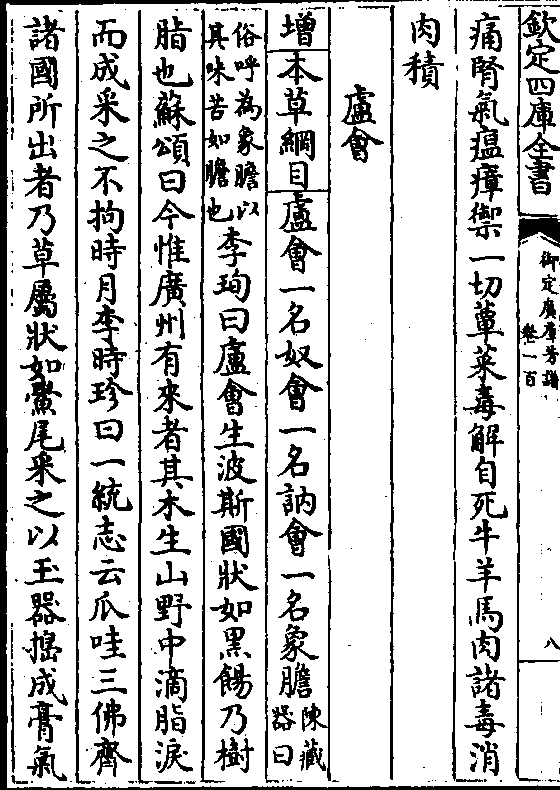 欽定四庫全書
御定廣羣芳譜
卷一百
八
痛腎氣瘟瘴禦一切蕈菜毒解自死牛羊馬肉諸毒消
肉積
盧會
增本草綱目盧會一名奴會一名訥會一名象膽陳藏器曰
俗呼為象膽以其味苦如膽也李珣曰盧會生波斯國狀如黑餳乃樹
脂也蘇頌曰今惟廣州有來者其木生山野中滴脂淚
而成采之不拘時月李時珍曰一統志云爪哇三佛齊
諸國所出者乃草屬狀如鱟尾采之以玉器搗成膏氣